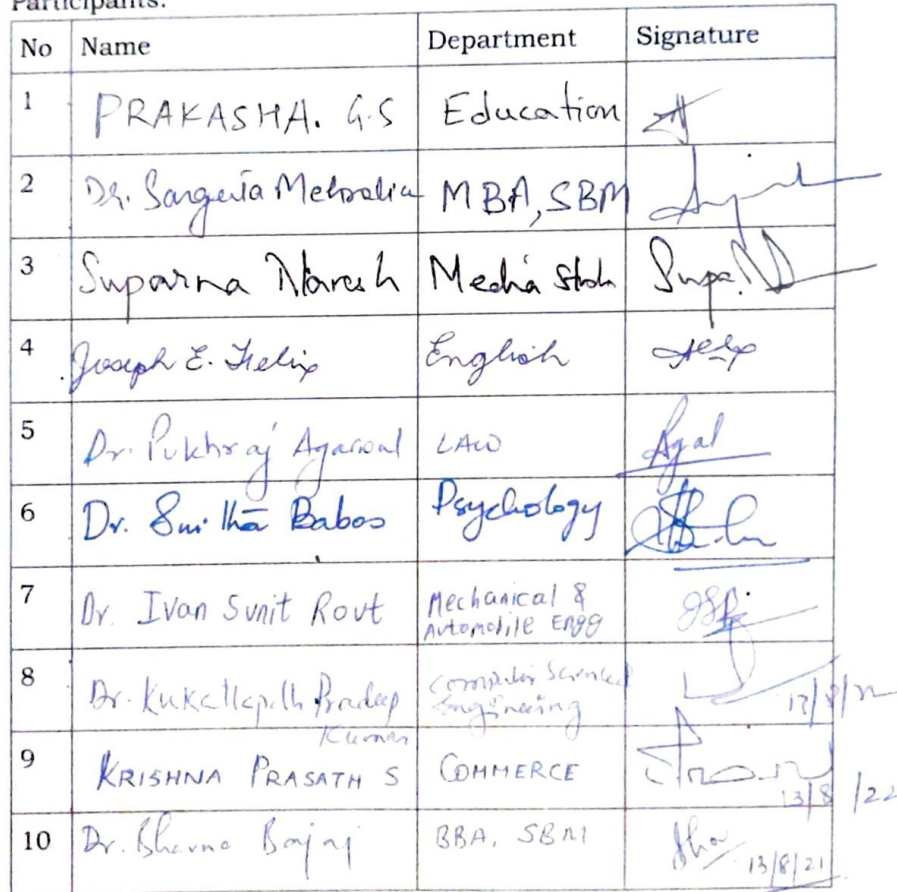 Participants:
No Name Department Signature
1 PRAKASHA. G.S Education
2 Dr. Sangeeta Mehrolia MBA, SBM
3 Suparna Naresh Media Stds Supa.N
4 Joseph E. Felix English Felix
5 Dr. Pukhraj Agarwal LAW Agal
6 Dr. Smitha Baboo Psychology
7 Dr. Ivan Sunit Rout Mechanical &
Automobile Engg
8 Dr. Pradeep Computer Science &
Kumar Engineering 13/8/22
9 KRISHNA PRASATH S COMMERCE
13/8/22
10 Dr. Bhavna Bajaj BBA, SBM 13/8/21